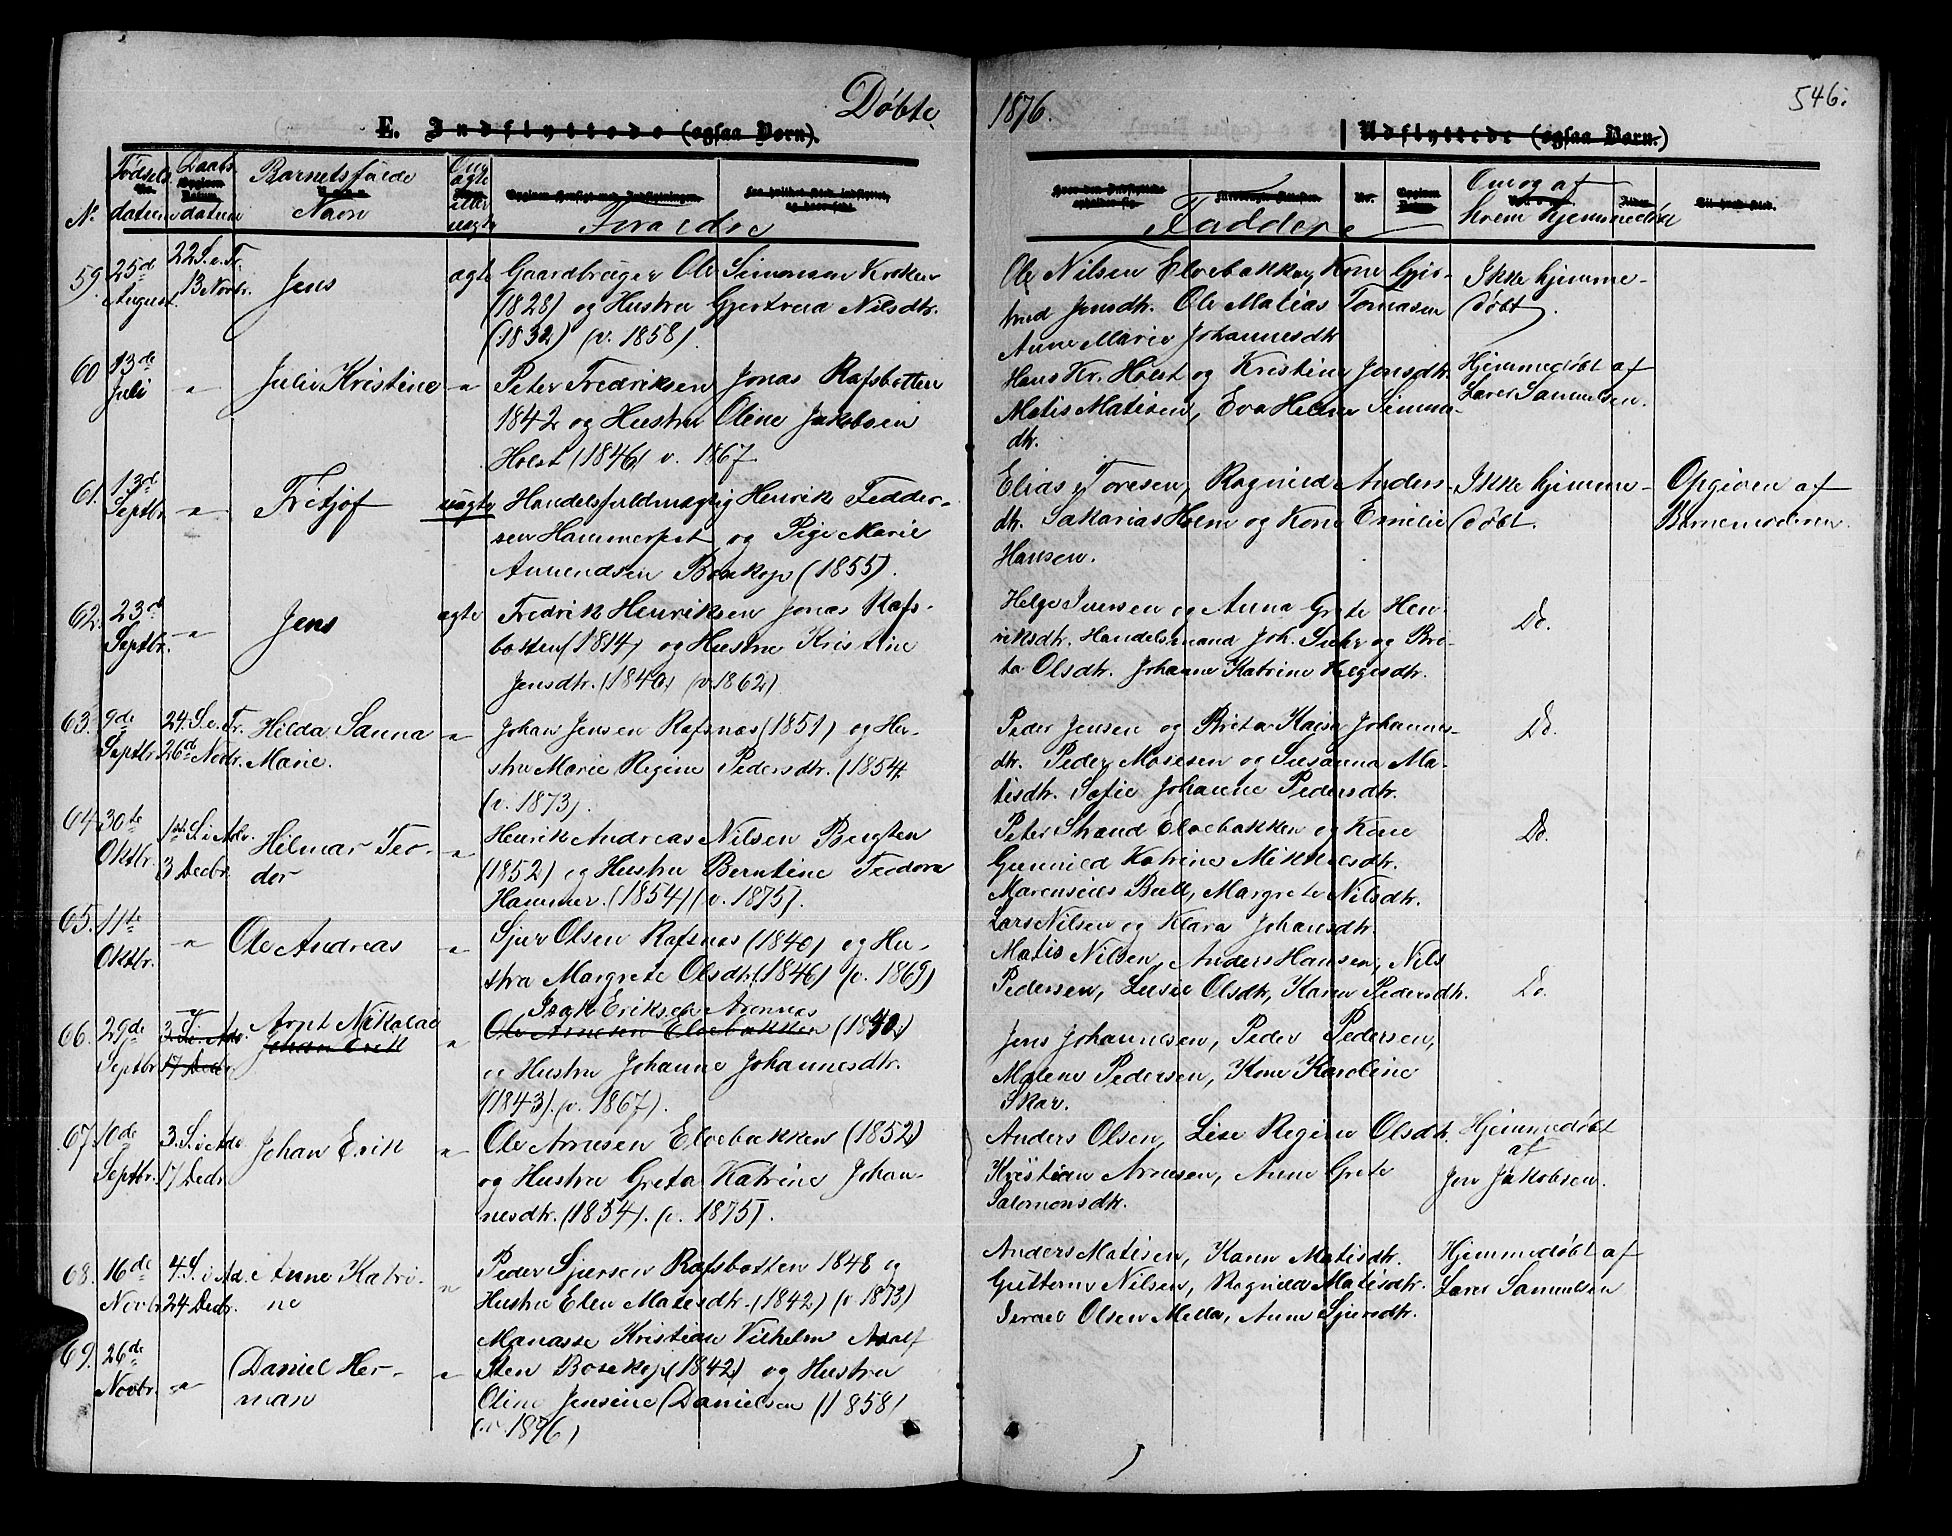 Døbte 1876. 546.
E. Indflyttede (ogsaa Børn). Udflyttede (ogsaa Børn.)
No. Fødsels datum Daabs datum Barnets fulde Navn Om ægte eller uægte Forældre Faddere Om og af hvem hjemmedøbt
59. 25de August. 22 S. e. Tr. 13 Novbr. Jens ægte Gaardbruger Ole Simonsen Kroken
(1828) og Hustru Gjertrud Nilsdtr.
(1832) (v. 1858).
Ole Nilsen Elvebakken, Kone Gjer-
trud Jensdtr. Ole Matias Tomasen
Anne Marie Johannesdtr
Ikke hjemme-
døbt.
60 13de Juli " Julie Kristine " Peter Fredriksen Jonas Rafsbotten
1842 og Hustru Oline Jakobsen
Holst (1846) v. 1867
Hans Kr. Holst og Kristine Jensdtr.
Matis Matisen, Eva Helene Simons-
dtr.
Hjemmedøbt af
Lærer Samuelsen.
61. 13de Septbr. " Fritjof uægte Handelsfuldmægtig Henrik Fedder-
sen Hammerfest og Pige Marie
Amundsen Bosekop (1855).
Elias Toresen, Ragnild Anders-
dtr. Sakarias Holm og Kone Emilie
Hansen.
Ikke hjemme-
døbt.
Opgiven af
Barnemoderen.
62. 23de Septbr. " Jens ægte Fredrik Henriksen Jonas Rafs-
botten (1814) og Hustru Kristine
Jensdtr. (1840) (v. 1862).
Helge Iversen og Anna Grete Hen-
riksdtr. Handelsmand Joh. Suhr og Bri-
ta Olsdtr. Johanne Katrine Helgesdtr.
Do.
63. 9de Septbr. 24. S. e. Tr. 26de Novbr. Hilda Sanna
Marie. " Johan Jensen Rafsnæs (1851) og Hu-
stru Marie Regine Pedersdtr. (1854
(v. 1873).
Peder Jensen og Brita Kaisa Johannes-
dtr. Peder Mosesen og Susanna Ma-
tisdtr. Sofie Johanne Pedersdtr.
Do.
64. 30te Oktbr. 1ste S. i Adv. 3 Decbr. Hilmar Teo-
dor " Henrik Andreas Nilsen Bugten
(1852) og Hustru Berntine Teodora
Hammer. (1854) (v. 1875).
Peter Strand Elvebakken og Kone
Gunnild Katrine Mikkelsdtr.
Marensius Bull, Margrete Nilsdtr.
Lars Nilsen og Klara Johansdtr.
Do.
65. 11te Oktbr. " Ole Andreas " Sjur Olsen Rafsnæs (1840) og Hu-
stru Margrete Olsdtr. (1846) (v. 1869)
Matis Nilsen, Anders Hansen, Nils
Pedersen, Lusie Olsdtr, Karen Pedersdtr.
Do.
66. 29de Septbr. 3. S. i Adv. 17 Decbr. Arnt Nikolai
Johan Erik " Isak Eriksen Aronnes
Ole Arnesen Elvebakken (1840)
og Hustru Johanne Johannesdtr.
(1843). (v. 1867).
Jens Johannesen, Peder Pedersen,
Malene Pedersen, Kone Karoline
Skar.
67. 10de Septbr. 3. S. i Adv. 17 Decbr. Johan Erik " Ole Arnesen Elvebakken (1852)
og Hustru Greta Katrine Johan-
nesdtr. (1854). (v. 1875).
Anders Olsen, Lise Regine Olsdtr.
Kristian Arnesen, Anne Grete
Salomonsdtr.
Hjemmedøbt
af
Jon Jakobsen.
68. 16de Novbr. 4. S. i Ad. 24 Decbr. Anne Katri-
ne " Peder Sjursen Rafsbotten 1848 og
Hustru Elen Matisdtr. (1842) (v 1873)
Anders Matisen, Karen Matisdtr.
Guttorm Nilsen, Ragnild Matisdtr.
Israel Olsen Mella, Anne Sjursdtr.
Hjemmedøbt af
Lærer Samuelsen
69. 26de Novbr. " Daniel Her-
man " Manasse Kristian Vilhelm Adolf
Sten Bosekop (1842) og Hustru
Oline Jensine Danielsen (1858)
(v. 1876)